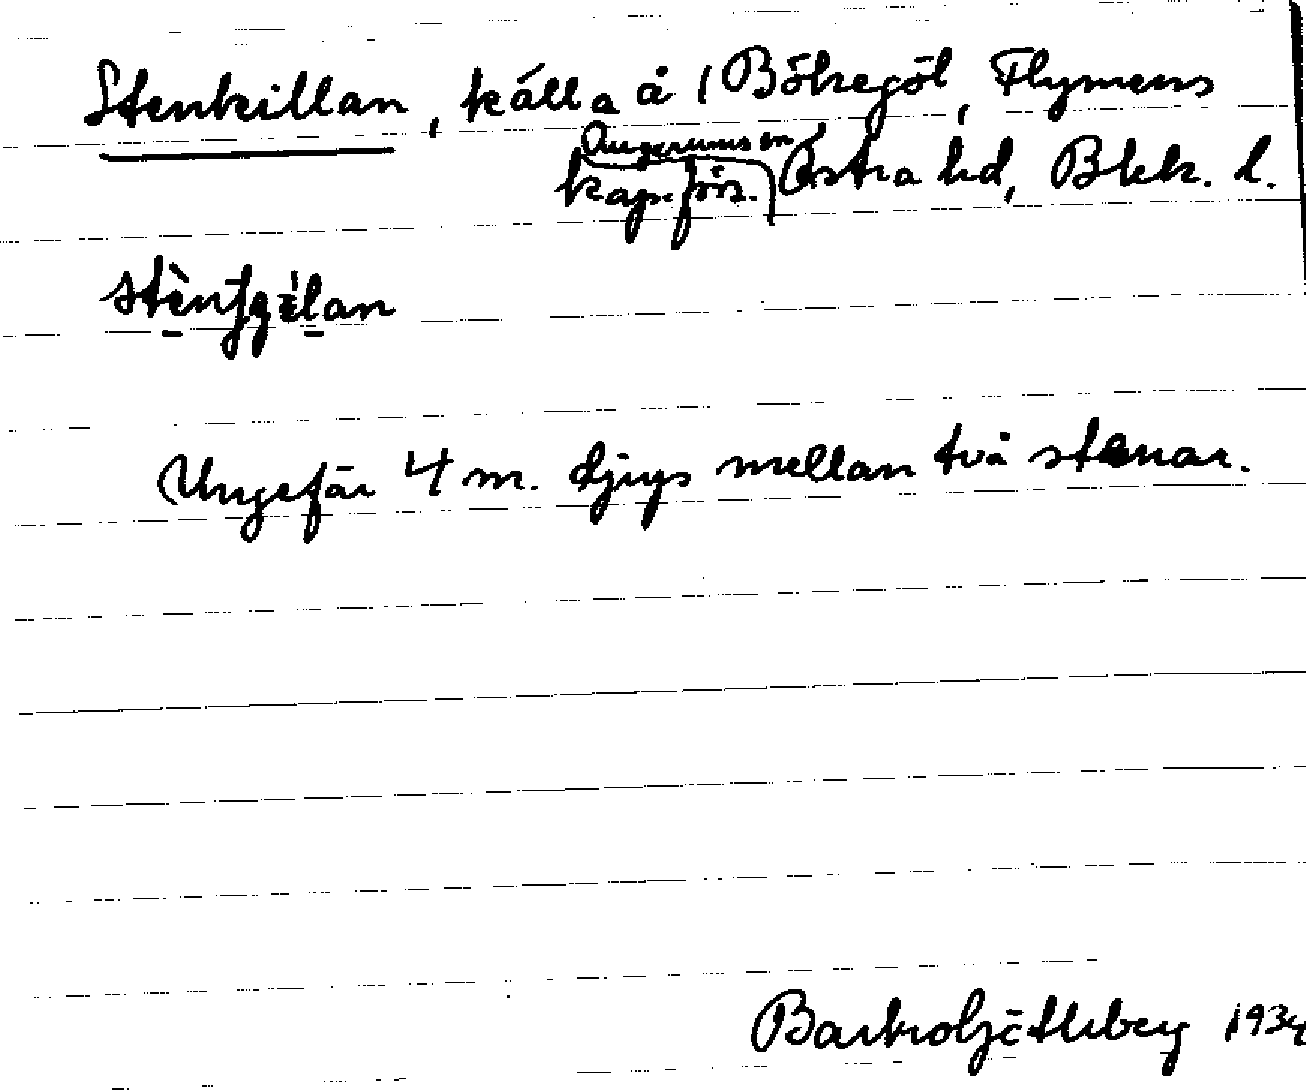 Stenkillan, källa å 1 Bökegöl, Flymens
Augerums sn
kap. förs. Östra hd, Blek. l.
Ungefär 4 m. djups mellan två stenar.
1934